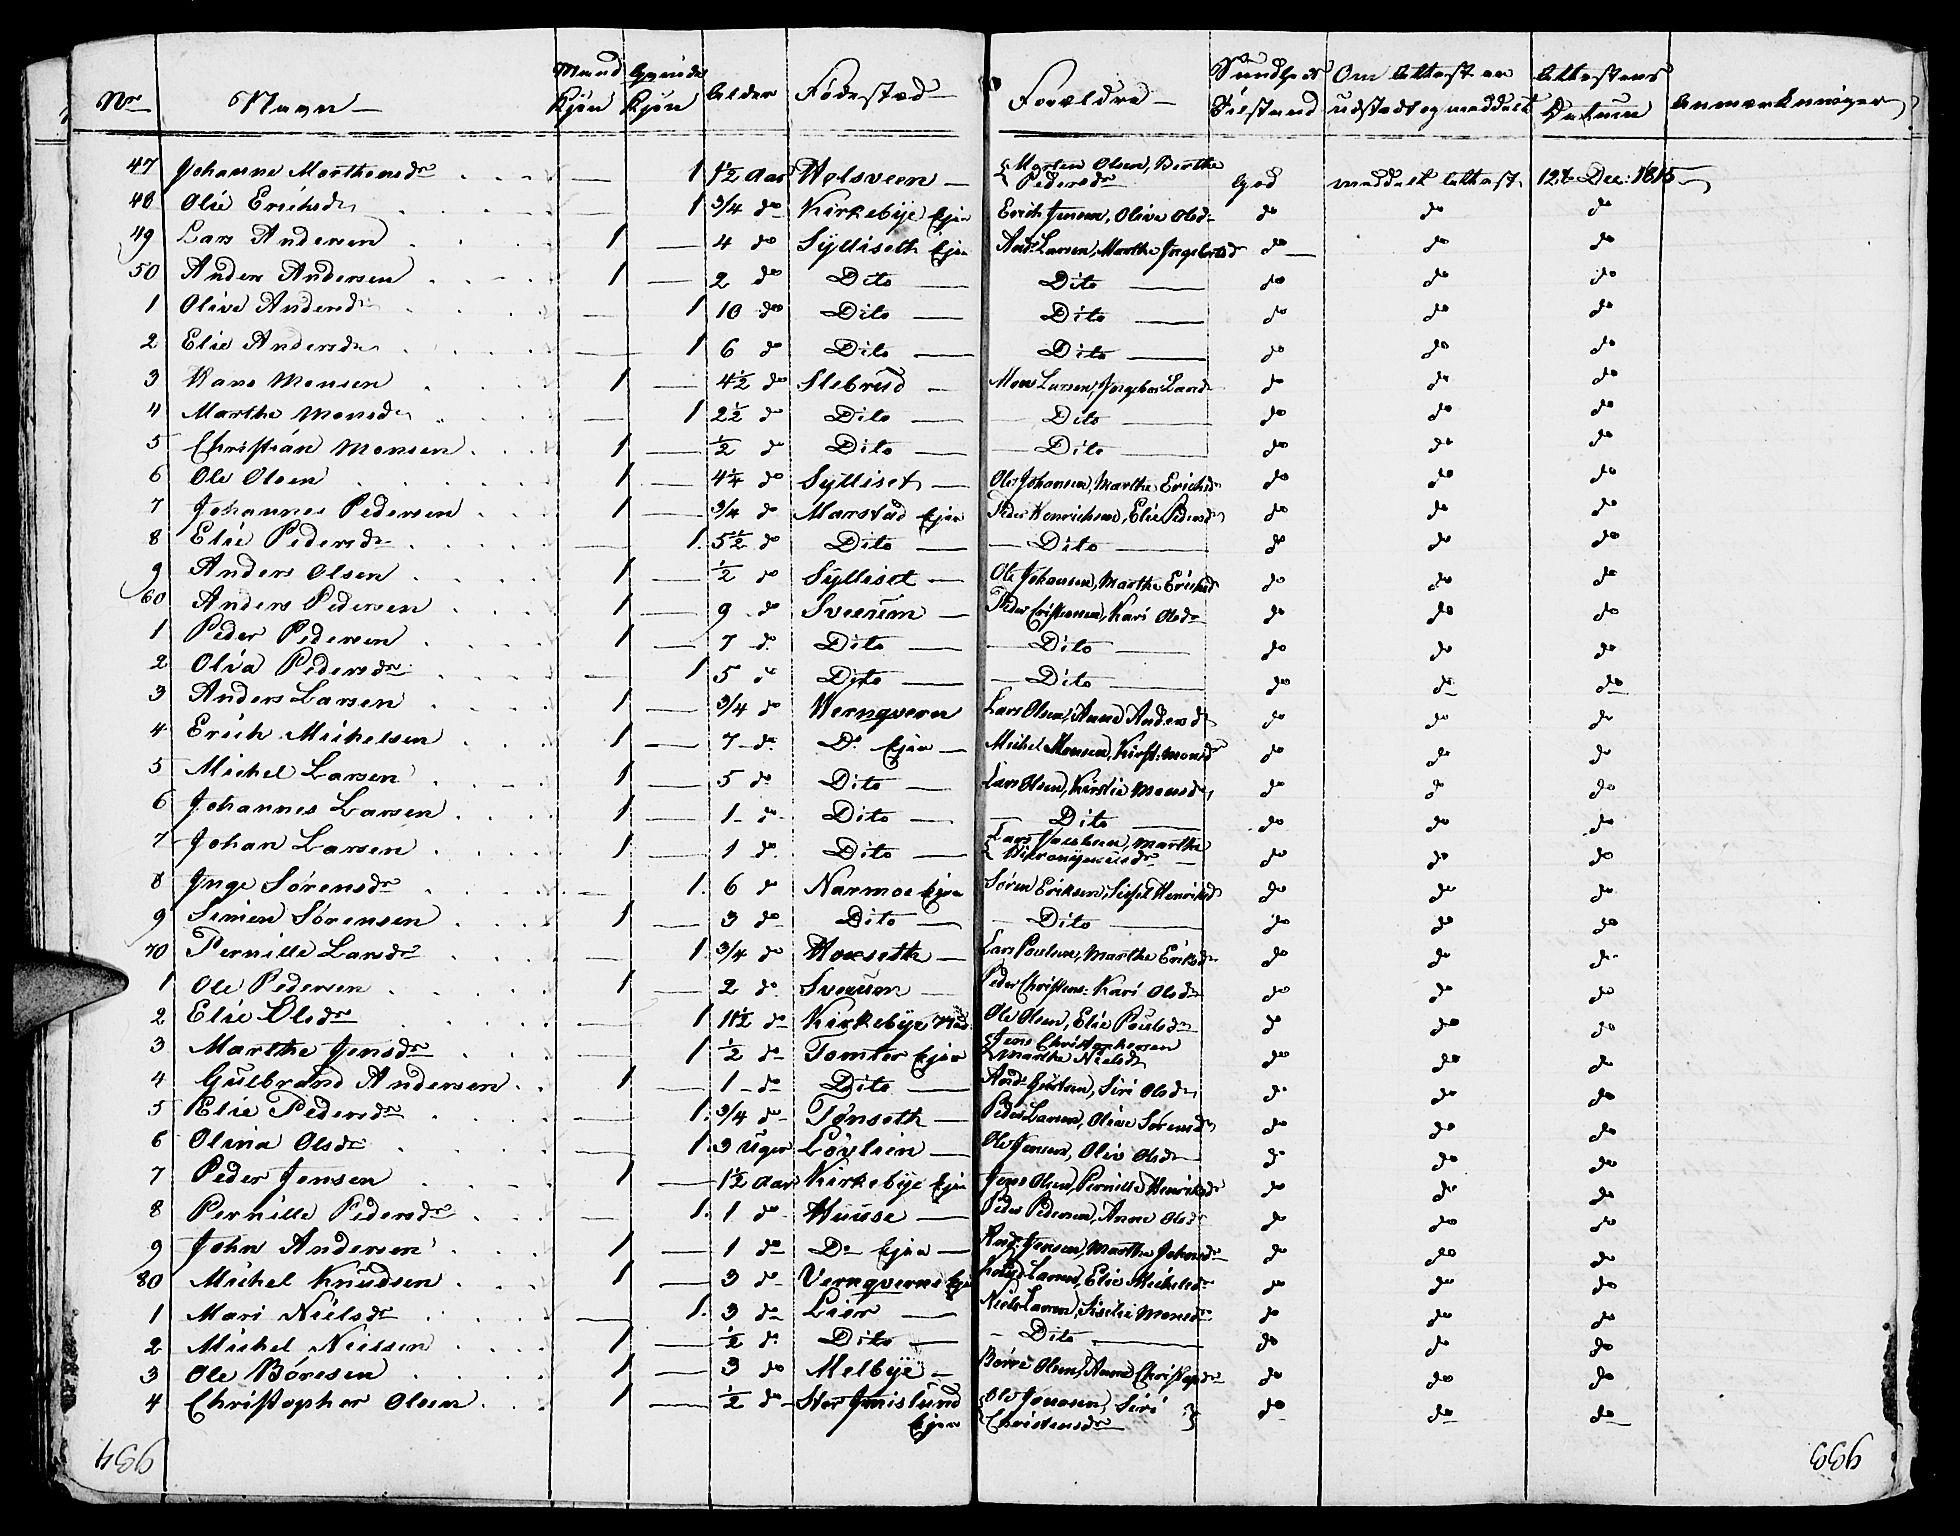 Nr Navn Mand Kjøn Qvinde Kjøn Alder Fødested Forældre Sundheds Tilstand Om Attest er udstædt og meddelt Attestens Datum Anmærkninger
47 Johanne Morthensdr 1 1½ Aar Holsveen {Morten Olsen, Berthe Pedersdr God meddelt Attest 12te Dec: 1815
48 Olie Erichsdr 1 3/4 do Kirkebÿe Ejer Erich Jensen, Olive Olsdr do do do
49 Lars Andersen 1 4 do Sÿlliseth Ejer Ands Larsen, Marthe Ingebretsd do do do
50 Anders Andersen 1 2 do Dito Dito do do do
1 Olive Andersdr 1 10 do Dito Dito do do do
2 Elie Andersdr 1 6 do Dito Dito do do do
3 Hans Monsen 1 4½ do Slebrud Mons Larsen, Ingebor Larsd do do do
4 Marthe Monsdr 1 2½ do Dito Dito do do do
5 Christian Monsen 1 ½ do Dito Dito do do do
6 Ole Olsen 1 4¼ do Sÿlliset Ole Johansen, Marthe Erichsd do do do
7 Johannes Pedersen 1 3/4 do Marstad Ejer Peder Henrichsen, Elie Pedersd do do do
8 Elie Pedersdr 1 5½ do Dito Dito do do do
9 Anders Olsen 1 ½ do Sÿlliset Ole Johansen, Marthe Erichsd do do do
60 Anders Pedersen 1 9 do Sveeum Peder Cristensen, Kari Olsdr do do do
1 Peder Pedersen 1 7 do Dito Dito do do do
2 Olia Pedersdr 1 5 do Dito Dito do do do
3 Anders Larsen 1 3/4 do Wernqvern Lars Olsen, Anne Andersd do do do
4 Erich Michelsen 1 7 do Do Ejer Michel Monsen, Kirst: Monsd do do do
5 Michel Larsen 1 5 do Dito Lars Olsen, Kirstie Monsd do do do
6 Johannes Larsen 1 1 do Dito Dito do do do
7 Johan Larsen 1 1 do Dito {Lars Jacobsen, Marthe Hieronymusdr do do do
8 Inge Sørensdr 1 6 do Narmoe Ejer Søren Eriksen, Sissel Henriksd do do do
9 Simen Sørensen 1 3 do Dito Dito do do do
70 Pernille Larsdr 1 3/4 do Hoeseth Lars Poulsen, Marthe Eriksd do do do
1 Ole Pedersen 1 2 do Sveeum Peder Christens: Kari Olsd do do do
2 Elie Olsdr 1 11½ do Kirkebÿe Ole Olsen, Elie Poulsdr do do do
3 Marthe Jensdr 1 ½ do Tomter Ejer {Jens Christophersen Marthe Nielsdr do do do
4 Gulbrand Andersen 1 1 do Dito Siri Olsd do do do
5 Elie Pedersdr 1 3/4 do Tønseth Peder Larsen, Olive Sørensd do do do
6 Olina Olsdr 1 3 Uger Løvlien Ole Jensen, Oliv Olsdr do do do
7 Peder Jensen 1 1½ Aar Kirkebÿe Ejer Jens Olsen, Pernille Henriksdr do do do
8 Pernille Pedersdr 1 1 do Huuse Peder Pedersen, Anne Olsd do do do
9 John Andersen 1 1 do Do Ejer And: Jensen, Marthe Johnsdr do do do
80 Michel Knudsen 1 3 do Vernqverns Ejer Larsen, Elie Michelsdr do do do
1 Mari Nielsdr 1 3 do Lier Niels Larsen, Sissele Monsdr do do do
2 Michel Nielsen 1 ½ do Dito Dito do do do
3 Ole Børesen 1 3 do Melbÿe Børre Olsen, Anne Christophdr do do do
4 Christopher Olsen 1 ½ do Stor Imislund Ejer {Ole Jonasen, Siri Christensdr } do do do
934
933